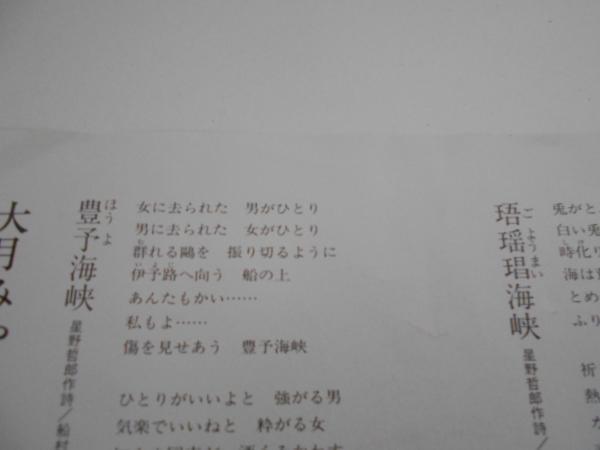 大月み
豊予海峡
ほうよ
星野哲郎作詩/船村
女に去られた 男がひとり
男に去られた 女がひとり
群れる鷗を 振り切るように
伊予路へ向う 船の上
あんたもかい……
私もよ……
傷を見せあう 豊予海峡
ひとりがいいよと 強がる男
気楽でいいねと 粋がる女
珸瑶瑁海峡
ごようまい
星野哲郎作詩/
兎がと
白い兎
時化り
海は
とめ
ふり
祈
熱